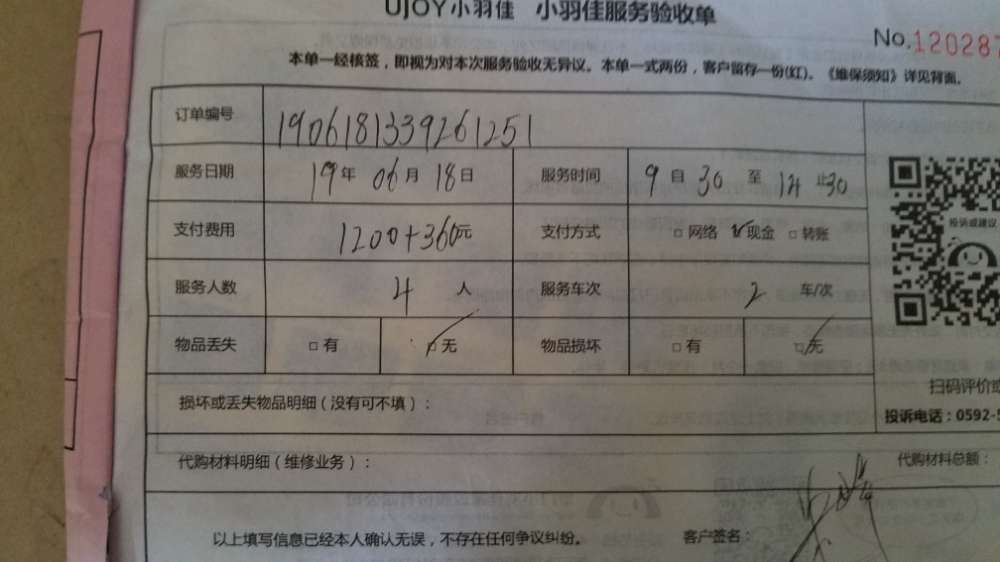 UJOY小羽佳 小羽佳服务验收单
No.120287
本单一经核签，即视为对本次服务验收无异议。本单一式两份，客户留存一份(红)。《维保须知》详见背面。
订单编号 1906181339261251
服务日期 19年 06月 18日 服务时间 9 自 30 至 14 止30
支付费用 1200+360元 支付方式 □网络 ☑现金 □转账
服务人数 4 人 服务车次 2 车/次
物品丢失 □有 ☑无 物品损坏 □有 ☑无
投诉或建议
扫码评价或
损坏或丢失物品明细（没有可不填）：
投诉电话：0592-5
代购材料明细（维修业务）： 代购材料总额：
以上填写信息已经本人确认无误，不存在任何争议纠纷。 客户签名：